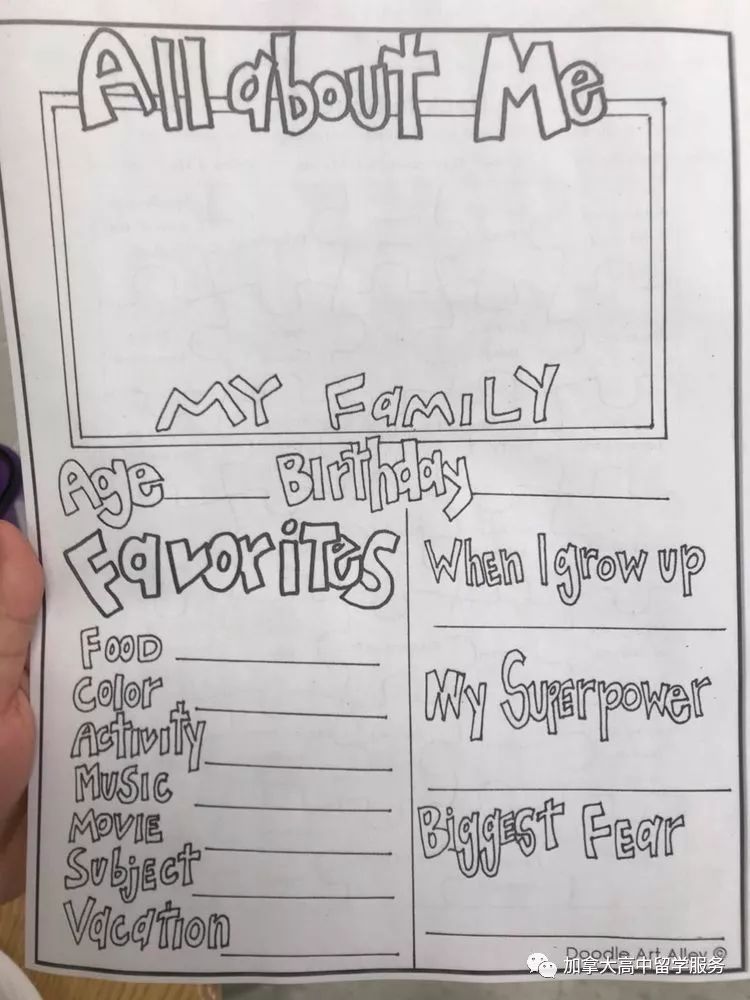 All about Me
MY FamILY
Age Birthday
Favorites
Food
Color
Activity
Music
Movie
Subject
Vacation
When I grow up
My Superpower
Biggest Fear
Doodle Art Alley ©
加拿大高中留学服务